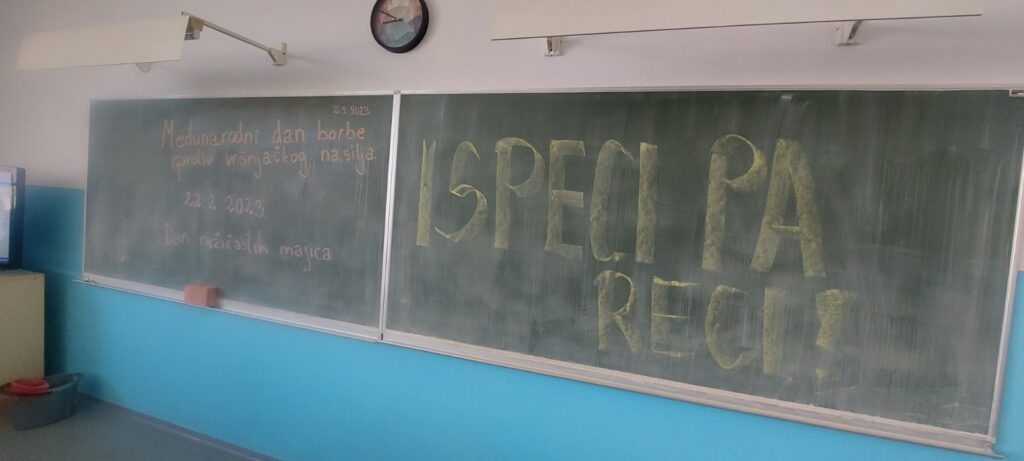 22.2.2023.
Međunarodni dan borbe
protiv vršnjačkog nasilja
22.2.2023.
Dan ružičastih majica
ISPECI PA
RECI!